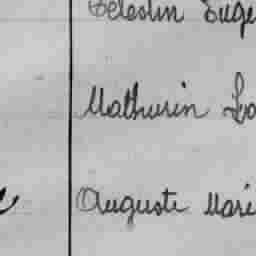 Célestin Eugè
Mathurin Lo
Auguste Mari